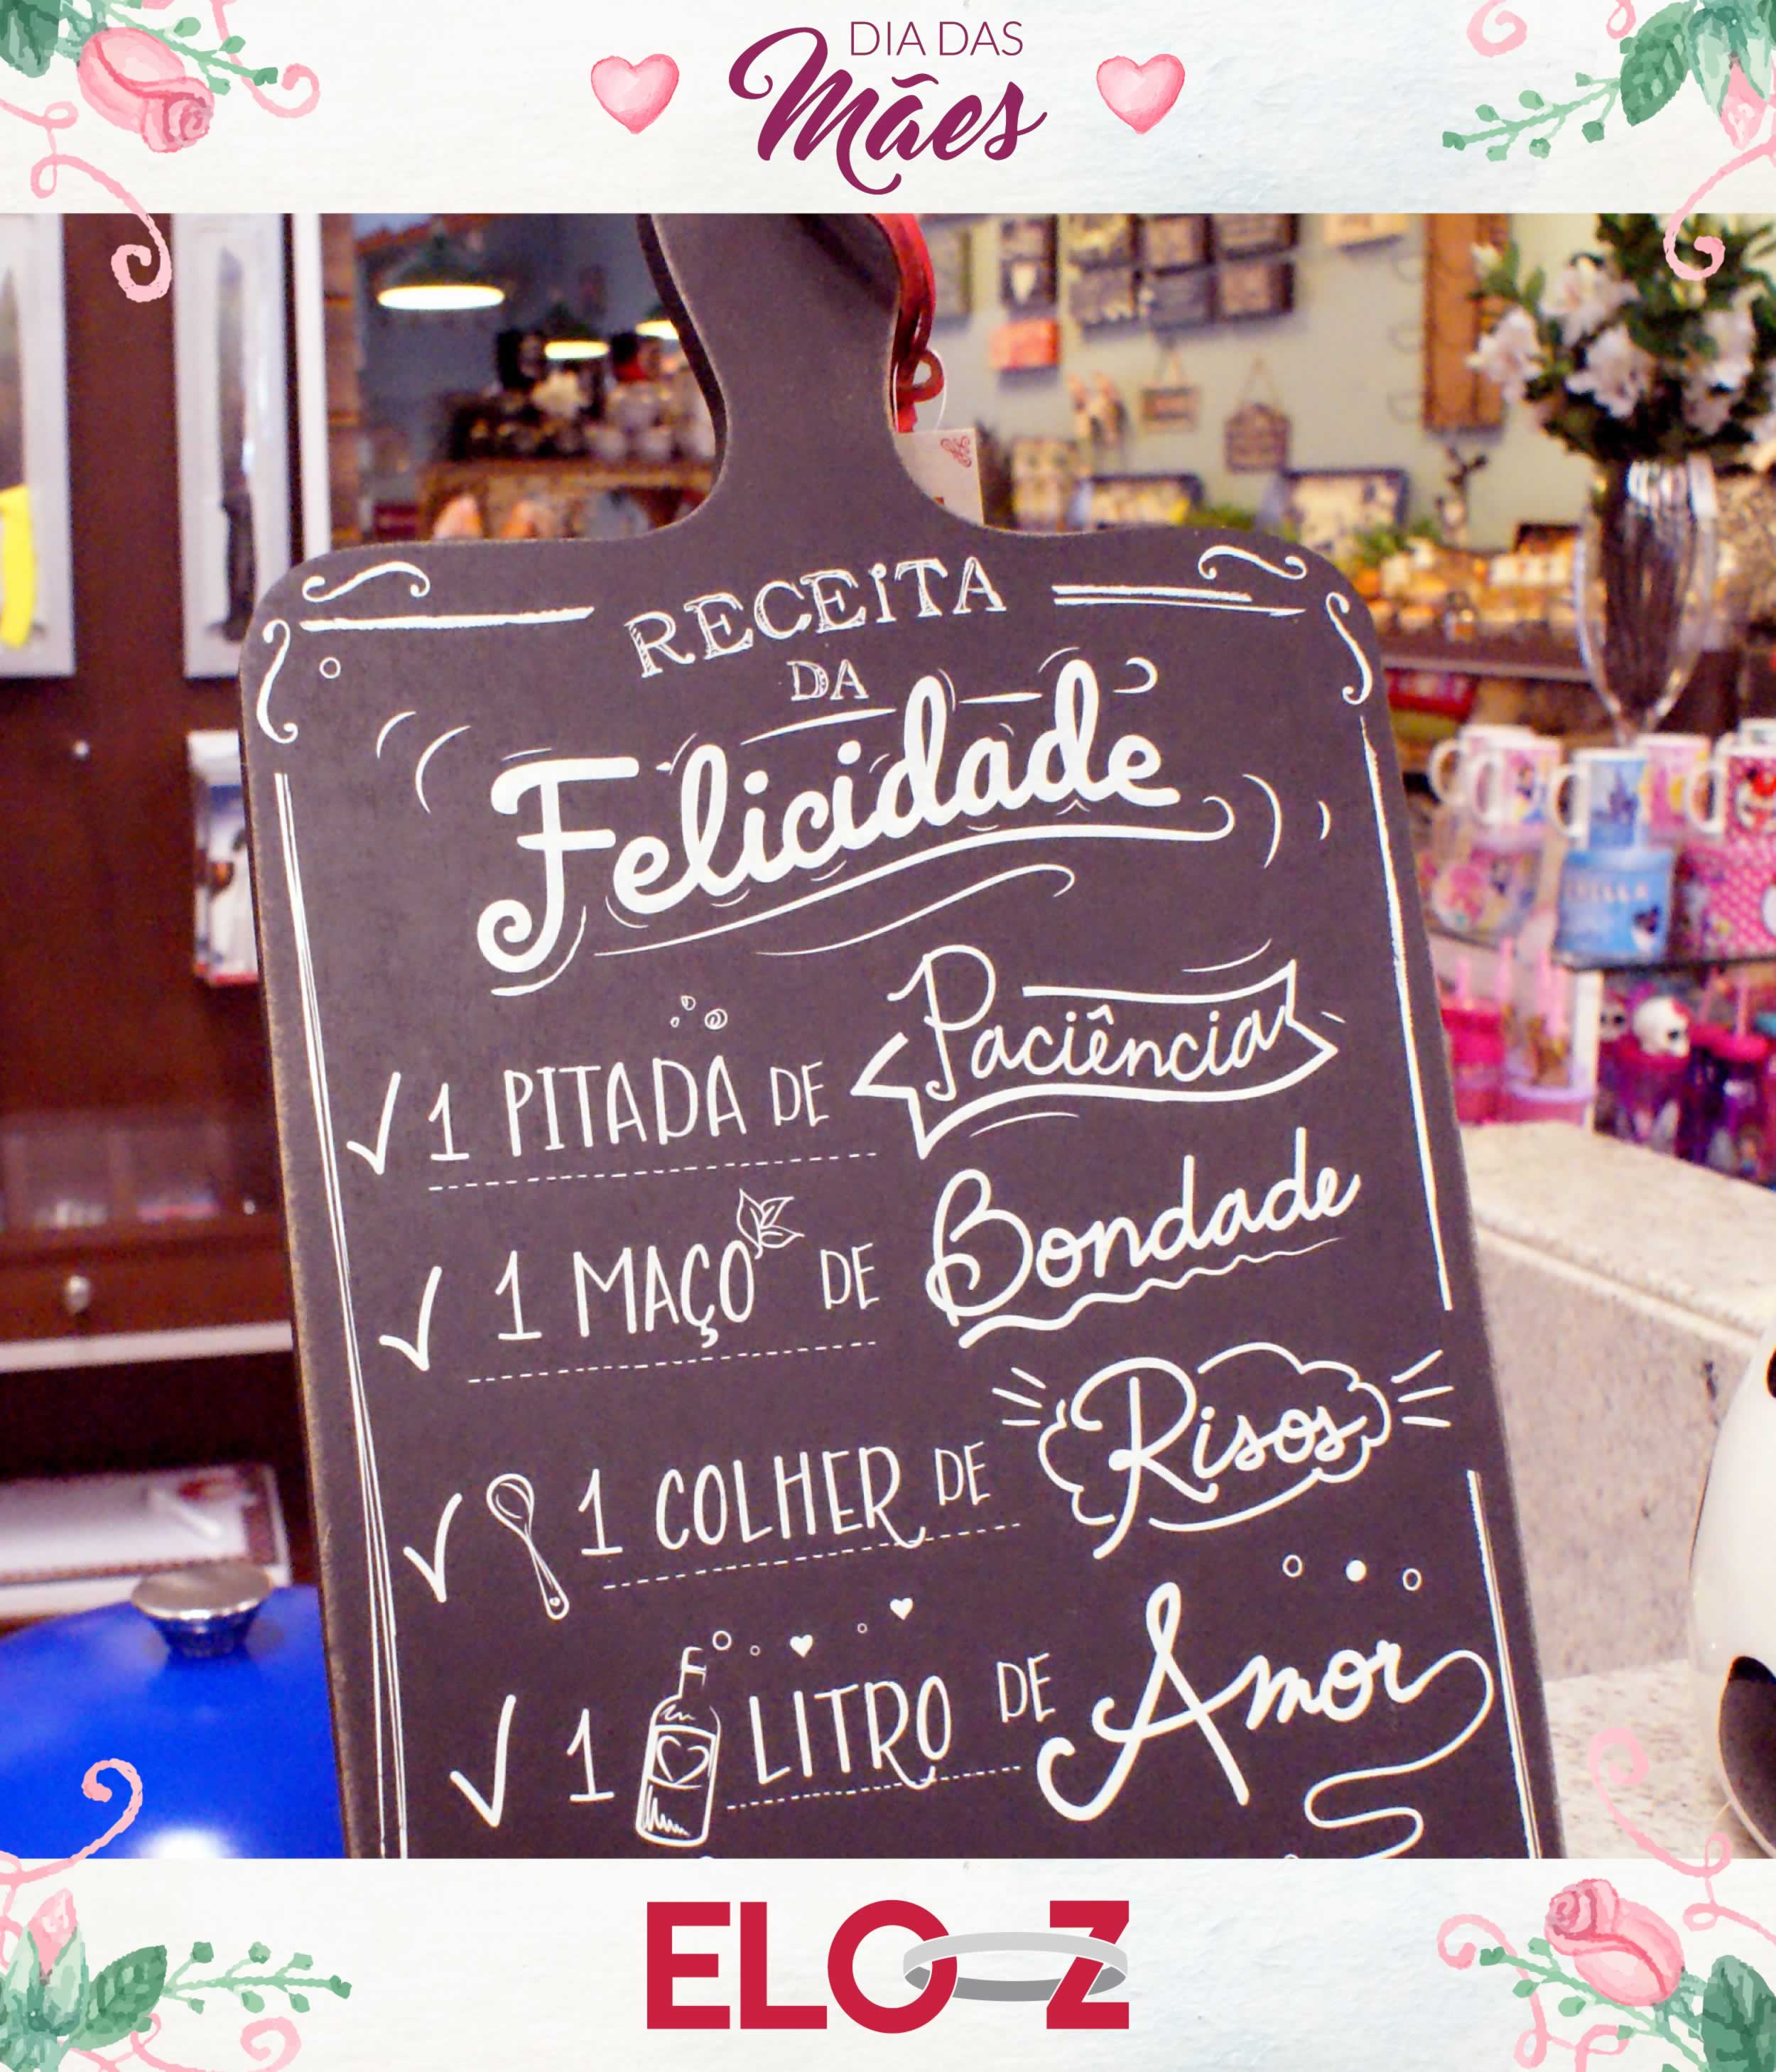 DIA DAS
Mães
RECEITA
DA
Felicidade
1 PITADA DE Paciência
1 MAÇO DE Bondade
1 COLHER DE Risos
1 LITRO DE Amor
ELO Z